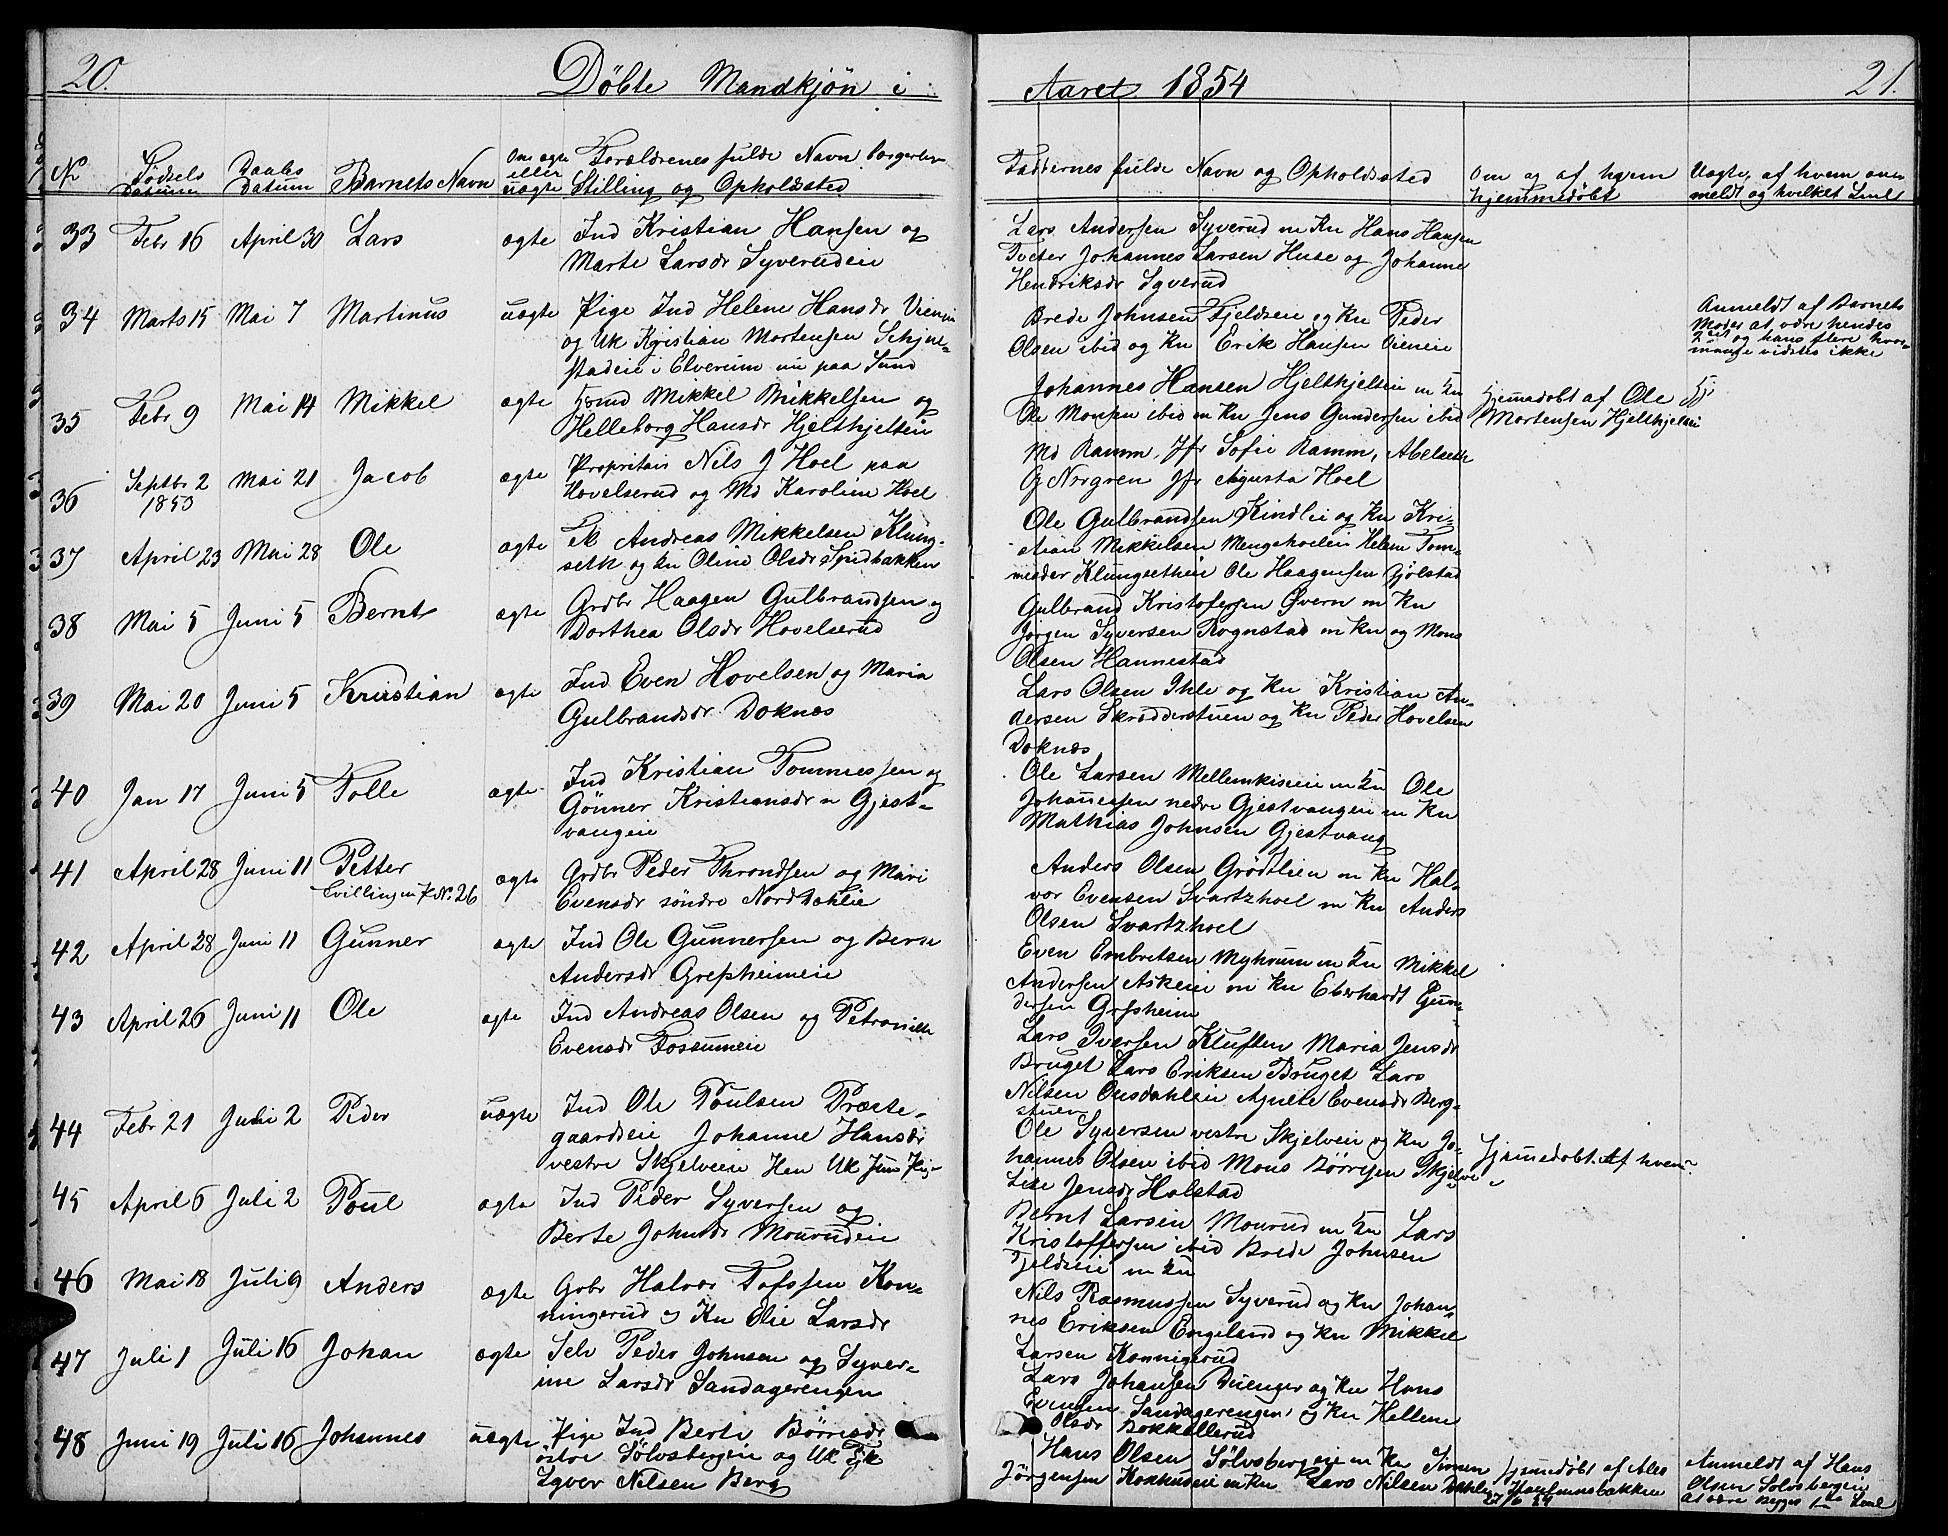 20.
Döbte Mandkjön i
Aaret 1854
21.
No
Fødsels Datum
Daabs Datum
Barnets Navn
Om ægte eller uægte
Forældrenes fulde Navn Borgerlige
Stilling og Opholdsted
Faddernes fulde Navn og Opholdssted
Om og af hvem
hjemmedøbt
Uægte, af hvem an-
meldt og hvilket Leiel
33 Febr 16 April 30 Lars ægte Ind Kristian Hansen og
Marte Larsdr Syverudeie
Lars Andersen Syverud m Kn Hans Hansen
Tveter Johannes Larsen Huse og Johanne
Hendriksdr Syverud
34 Marts 15 Mai 7 Martinus uægte Pige Ind Helene Hansdr Vieneie
og Uk Kristian Mortensen Schjul-
stadeie i Elverum nu paa Sund
Brede Johnsen Fjeldseie og Kn Peder
Olsen ibid og Kn Erik Hansen Vieneie
Anmeldt af Barnets
Moder at være hendes
2det og hans flere hvor-
mange vidstes ikke
35 Febr 9 Mai 14 Mikkel ægte Hmd Mikkel Mikkelsen og
Helleborg Hansdr Hjelthjelseie
Johannes Hansen Hjelthjelseie m Kn
Ole Monsen ibid m Kn Jens Gundersen ibid
Hjemmedøbt af Ole
Mortensen Hjelthjelseie
36 Septbr 2 1853 Mai 21 Jacob ægte Propritair Nils J Hoel paa
Hovelserud og Md Karoline Hoel
Md Ramm, Jfr Sofie Ramm, Abelseth
Og Norgren Jfr Augusta Hoel
37 April 23 Mai 28 Ole ægte Ek Andreas Mikkelsen Klung-
seth og Kn Oline Olsdr Smidbakken
Ole Gulbrandsen Kindlie og Kn Kri-
stian Mikkelsen Mengshoeleie Helene Tom-
mesdr Klungsetheie Ole Haagensen Gjölstad
38 Mai 5 Juni 5 Bernt ægte Grdbr Haagen Gulbrandsen og
Dorthea Olsdr Hovelserud
Gulbrand Kristofersen Øvern m Kn
Jorgen Syversen Rognstad m Kn og Mons
Olsen Hannestad
39 Mai 20 Juni 5 Kristian ægte Ind Even Hovelsen og Maria
Gulbrandsdr Doknæs
Lars Olsen Ihle og Kn Kristian An-
dersen Skrædderstuen og Kn Peder Hovelsen
Doknæs
40 Jan 17 Juni 5 Tolle ægte Ind Kristian Tommessen og
Gönner Kristiansdr n Gjest-
vangeie
Ole Larsen Mellemkiseie m Kn Ole
Johannessen nedre Gjestvangeie m Kn
Mathias Johnsen Gjestvang
41 April 28 Juni 11 Petter
Tvilling m P No 26 ægte Grdbr Peder Throndsen og Mari
Evensdr søndre Norddahlie
Anders Olsen Grödtlien m Kn Hal-
vor Evensen Svartzhoel m Kn Anders
Olsen Svartzhoel
42 April 28 Juni 11 Gunner ægte Ind Ole Gunnersen og Berte
Andersdr Grepsheimeie
Even Embretsen Myhrum m Kn Mikkel
Andersen Askeie m Kn Eberhardt Gun-
dersen Grpsheim
43 April 26 Juni 11 Ole ægte Ind Andreas Olsen og Petronille
Evensdr Fossumeie
Lars Iversen Kluften Maria Jensdr
Bruget Lars Eriksen Bruget Lars
Nilsen Onsdahleie Agnete Evensdr Berg-
stuen
44 Febr 21 Juli 2 Peder uægte Ind Ole Poulsen Præste-
gaardseie Johanne Hansdr
vestre Skjelveie Hen Uk Juns Pige
Ole Syversen vestre Skjelveie og Kn Jo-
hannes Olsen ibid Mons Börresen Skjelve
Lise Jensdr Halstad
Hjemmedøbt. Af hvem?
45 April 6 Juli 2 Poul ægte Ind Peder Syversen og
Berte Johnsdr Mourudeie
Bernt Larsen Mourud m Kn Lars
Kristoffersen ibid Brede Johnsen
Fjeldseie m Kn
46 Mai 18 Juli 9 Anders ægte Grbr Halvor Tofssen Kon-
ningerud og Kn Olie Larsdr
Nils Rasmussen Syverud og Kn Johan-
nes Eriksen Engeland og Kn Mikkel
Larsen Konnigerud
47 Juli 1 Juli 16 Johan ægte Selv Peder Johnsen og Syver-
ine Larsdr Sandagerengen
Lars Johansen Duenger og Kn Hans
Evensen Sandagerengen og Kn Hellene
Olsdr Bokkellerud
48 Juni 19 Juli 16 Johannes uægte Pige Ind Berte Börresdr
østre Sölvsbergeie og Uk Tjk
Syver Nilsen Berg
Hans Olsen Sölvsbergeie m Kn Simen
Jörgensen Konhuseie m Kn Lars Nilsen Dahle
Hjemedøbt af Ales
Haugmnsbakken
27/6 54
Anmeldt af Hans
Olsen Solvsbergeie
at være Begges 1ste Leiel